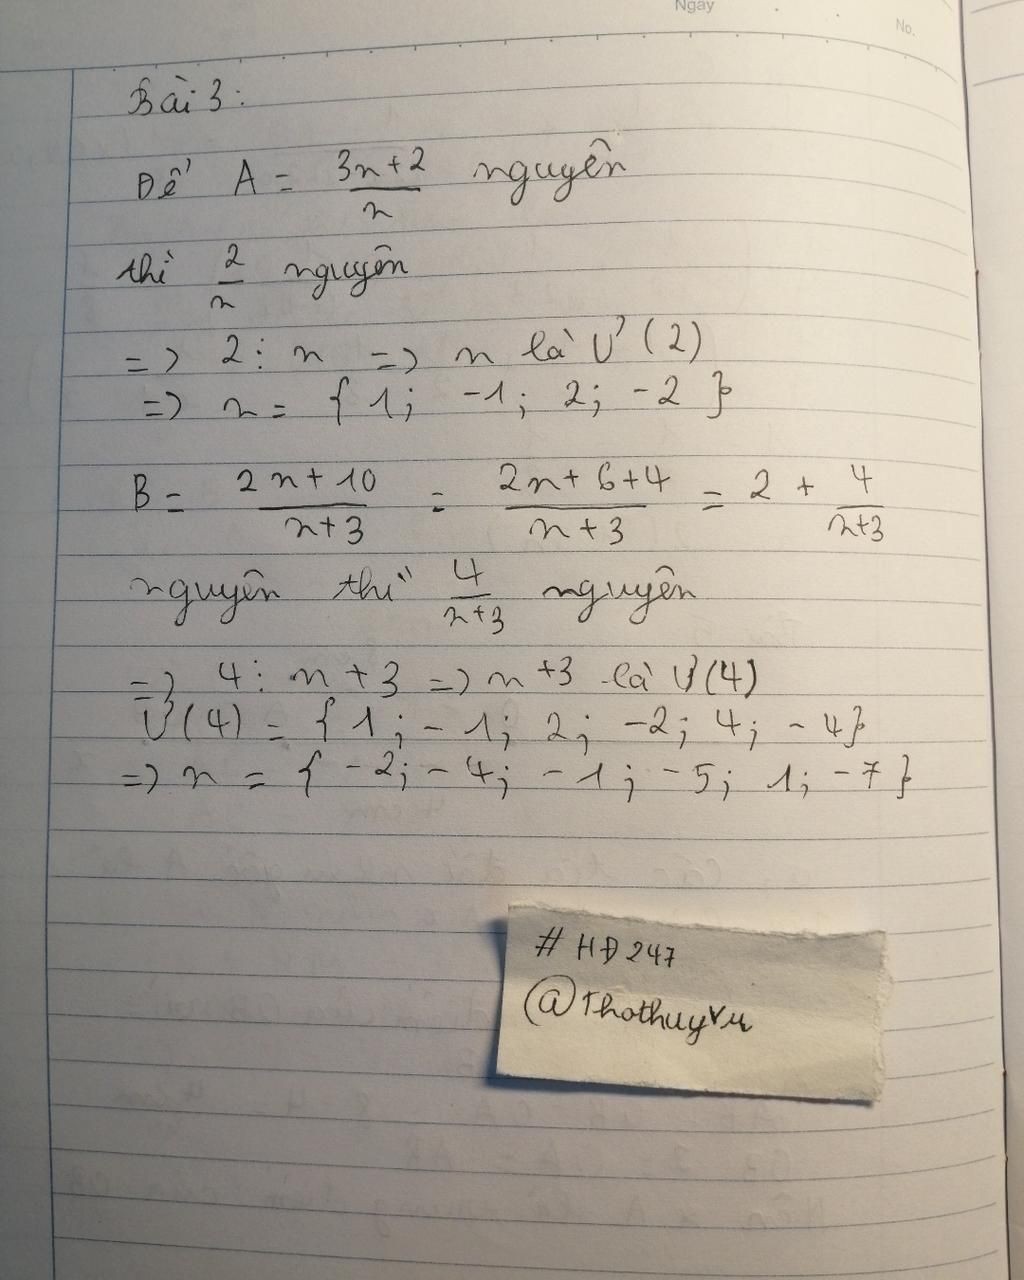 Ngày
No.
Bài 3:
Để A = \frac{3n+2}{n} nguyên
thì \frac{2}{n} nguyên
=> 2 ⋮ n => n là Ư(2)
=> n = { 1; -1; 2; -2 }
B = \frac{2n+10}{n+3} = \frac{2n+6+4}{n+3} = 2 + \frac{4}{n+3}
nguyên thì \frac{4}{n+3} nguyên
=> 4 ⋮ n+3 => n+3 là Ư(4)
Ư(4) = { 1; -1; 2; -2; 4; -4}
=> n = { -2; -4; -1; -5; 1; -7 }
# HĐ247
@Thothuyvu